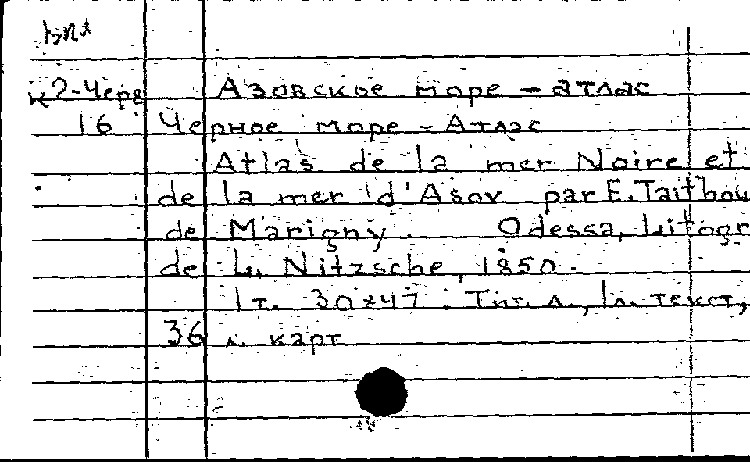 к2-Черв Азовское море - атлас
16 Черное море - Атлас
Atlas de la mer Noire et
de la mer d'Asov par E. Taitbou
de Marigny. Odessa, Litogr
de L. Nitzsche, 1850.
1 т. 30×47. Тит. л., 1 л. текст,
36 л. карт